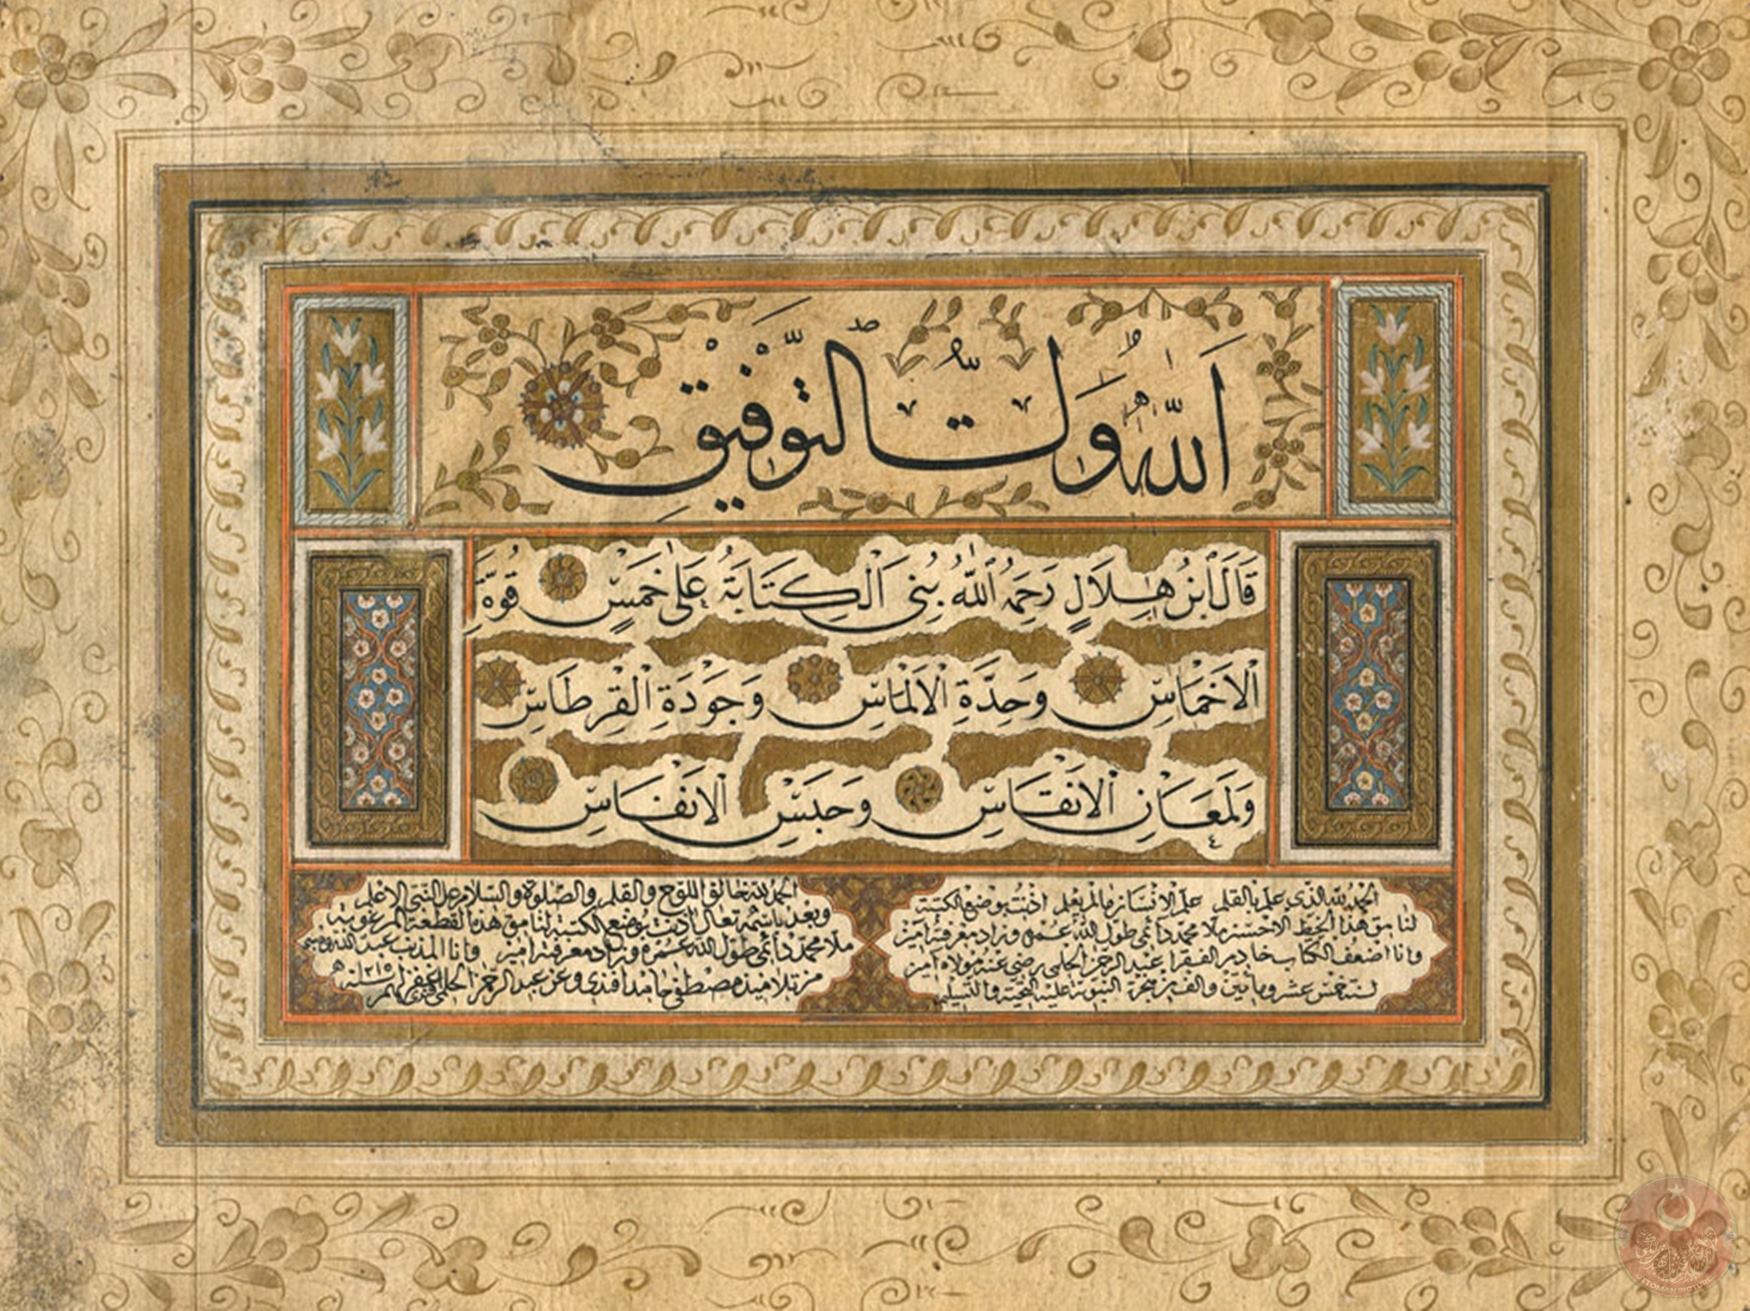 اَللّٰهُ وَلِيُّ التَّوْفِيقِ
قَالَ ابْنُ هِلَالٍ رَحِمَهُ اللّٰهُ بُنِيَ الْكِتَابَةُ عَلَى خَمْسٍ قُوَّةِ
الْاَخْمَاسِ وَحِدَّةِ الْاَلْمَاسِ وَجَوْدَةِ الْقِرْطَاسِ
وَلَمَعَانِ الْاَنْقَاسِ وَحَبْسِ الْاَنْفَاسِ
الحمد لله الذي علم بالقلم علم الانسان ما لم يعلم اذنت بوضع الكتبة
لنامق هذا الخط الاحسن ملا محمد دائمى طول الله عمره وزاد معرفته آمين
وانا اضعف الكتاب خادم الفقرا عبد الرحمن الحلمي رضي عنه مولاه آمين
لسنة خمس عشر ومأتين والف من هجرة النبوية عليه التحية والتسليم
الحمد لله خالق اللوح والقلم والصلوة والسلام على النبي الاعلم
وبعد باسمه تعالى اذنت بوضع الكتبة لنامق هذا القطعة المرغوبة
ملا محمد دائمى طول الله عمره وزاد معرفته آمين وانا المذنب عبد الله
من تلاميذ مصطفى حامد افندى وعن عبد الرحمن الحلمي سنة ١٢١٥